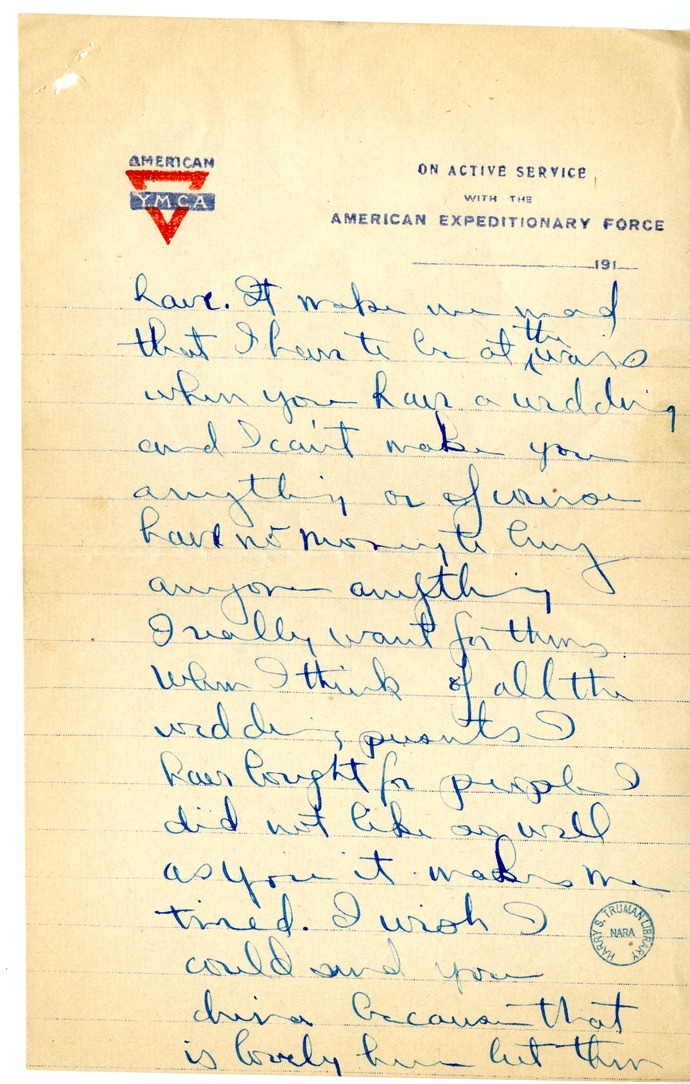 AMERICAN
YMCA
ON ACTIVE SERVICE
WITH THE
AMERICAN EXPEDITIONARY FORCE
191
have. It make me mad
that I have to be at the wars
when you have a wedding
and I can't make you
anything or of course
have no money to buy
anyone anything
I really want for them.
When I think of all the
wedding presents I
have bought for people I
did not like as well
as you it makes me
tired. I wish I
could send you
china because that
is lovely here but then
HARRY S. TRUMAN LIBRARY
NARA